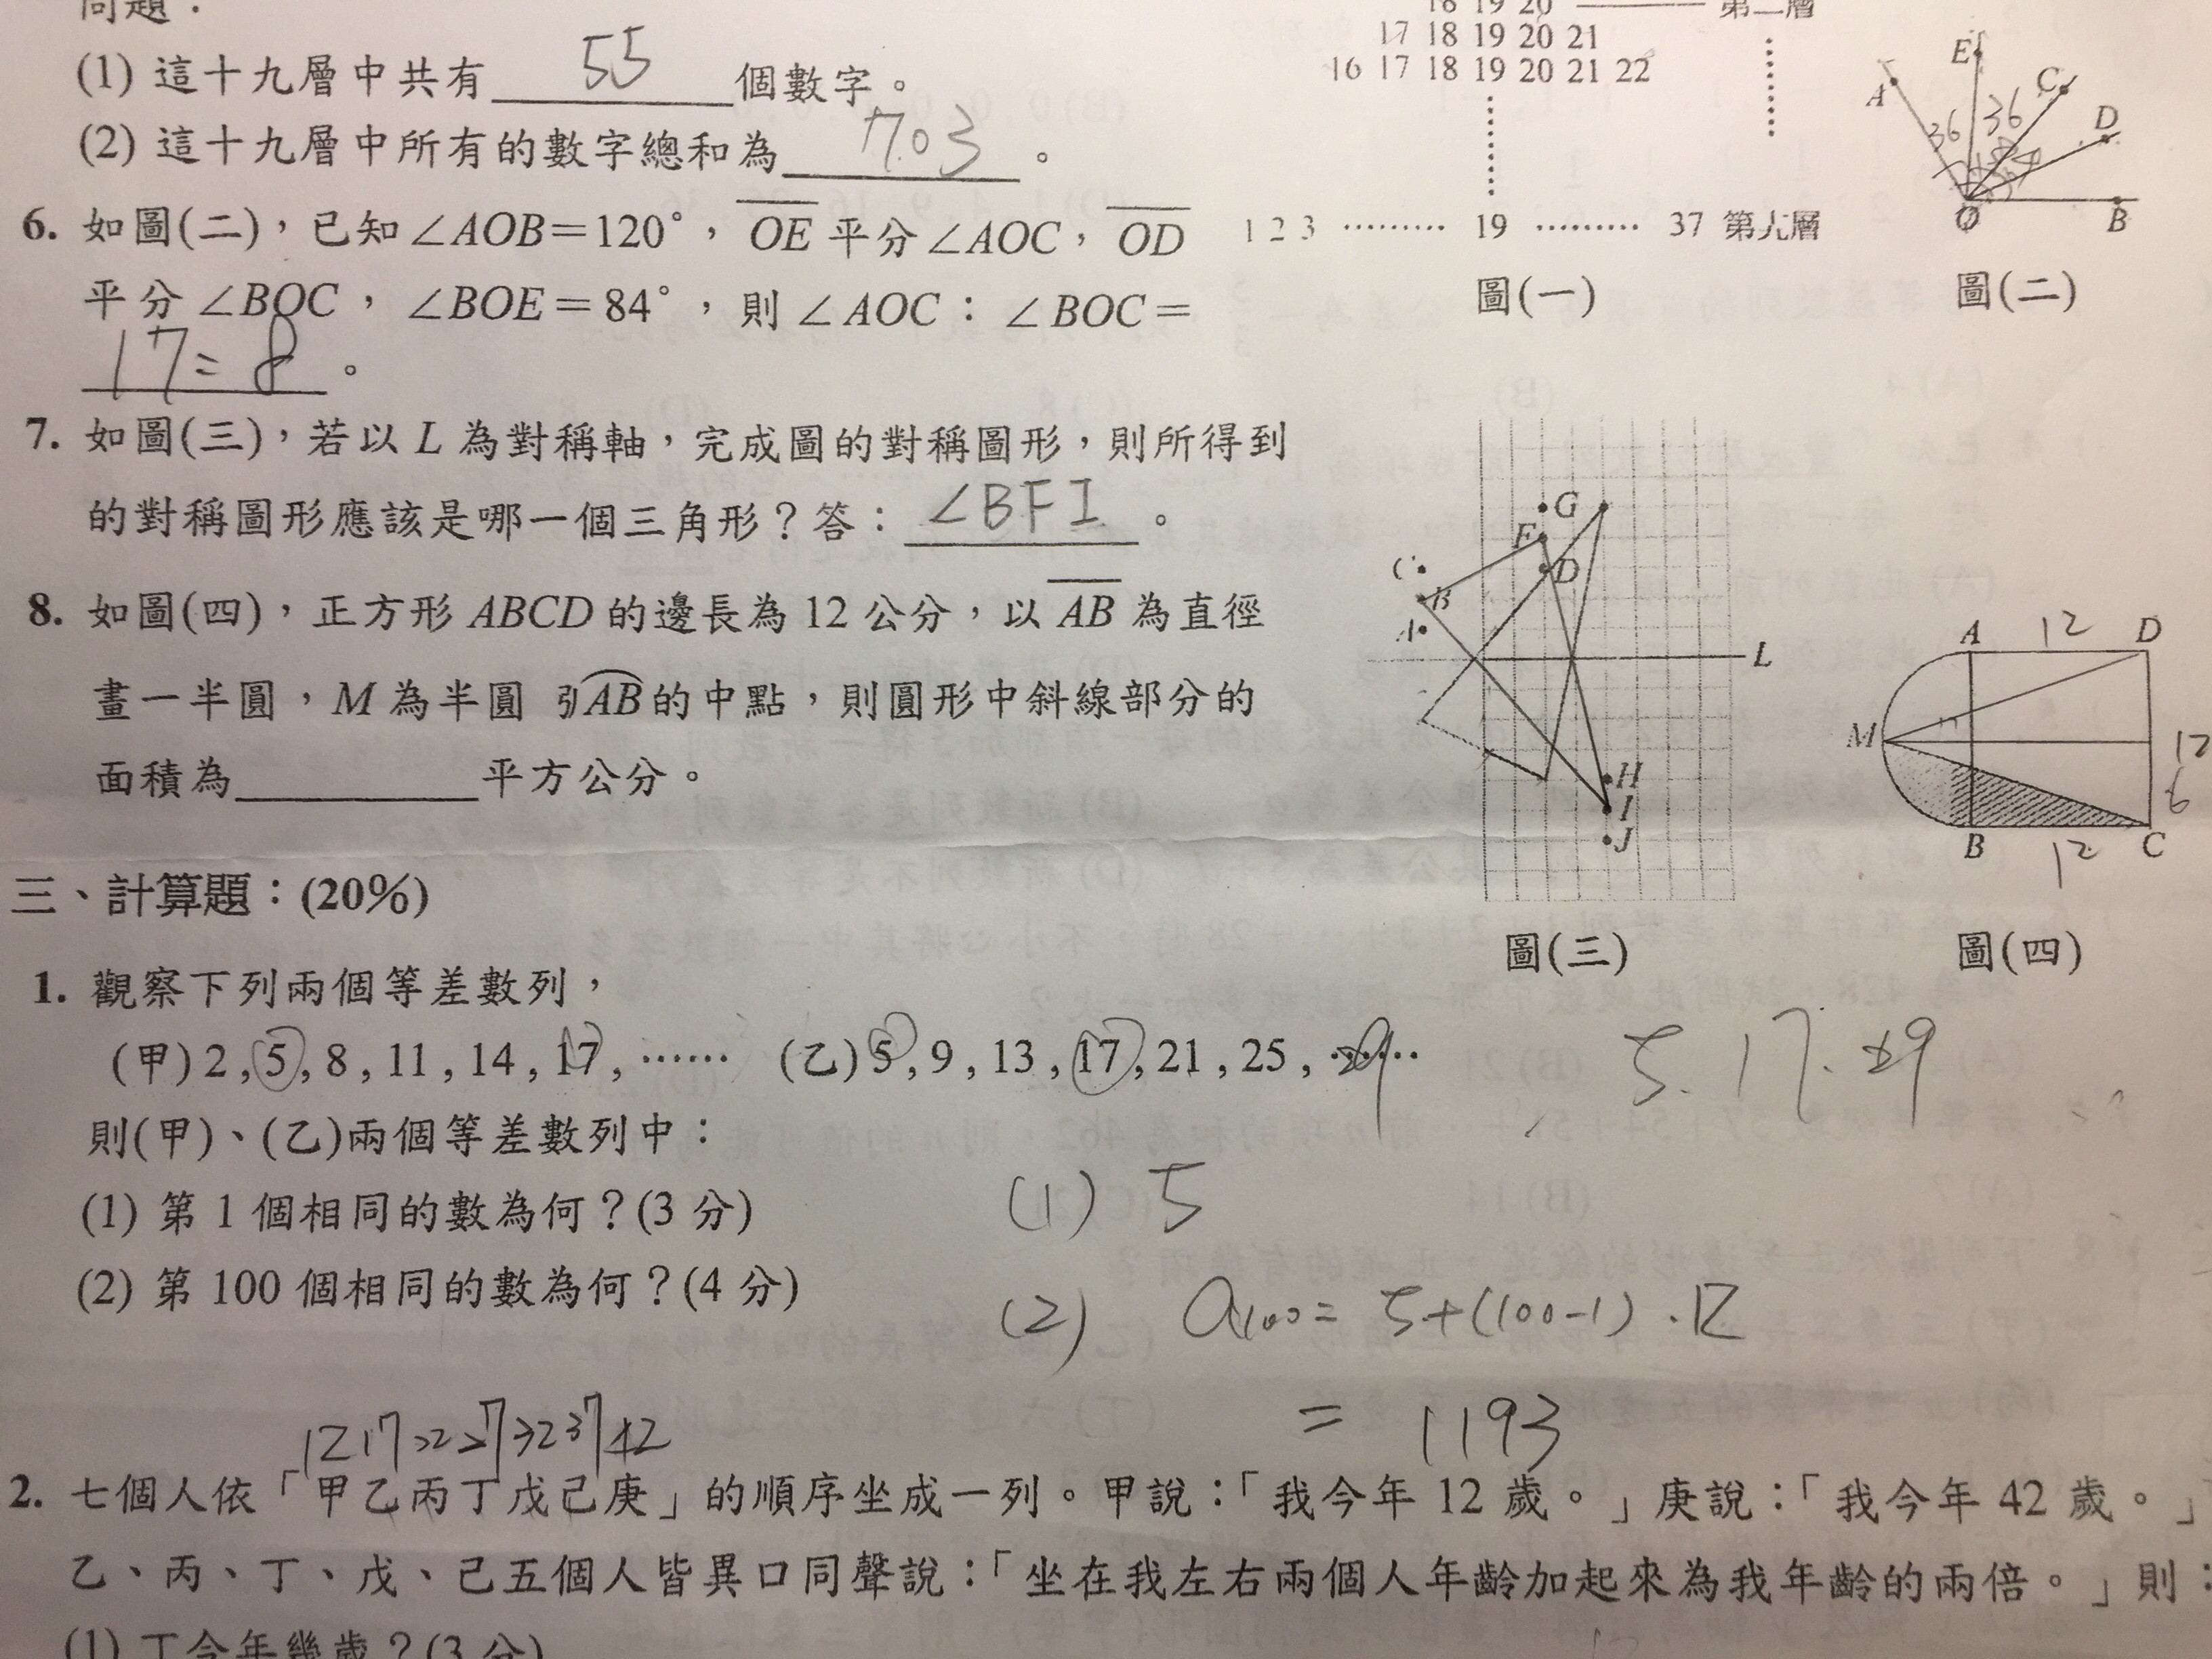 問題：
(1) 這十九層中共有 55 個數字。
(2) 這十九層中所有的數字總和為 703 。
6. 如圖(二)，已知∠AOB=120°，OE平分∠AOC，OD
平分∠BOC，∠BOE=84°，則∠AOC：∠BOC=
17=8 。
7. 如圖(三)，若以 L 為對稱軸，完成圖的對稱圖形，則所得到
的對稱圖形應該是哪一個三角形？答： ∠BFI 。
8. 如圖(四)，正方形 ABCD 的邊長為 12 公分，以 AB 為直徑
畫一半圓，M 為半圓 引AB的中點，則圓形中斜線部分的
面積為 平方公分。
18 19 20 第二層
17 18 19 20 21
16 17 18 19 20 21 22
1 2 3 ……… 19 ……… 37 第九層
圖(一)
A E C D O B
36 36
圖(二)
G F D C B A L H I J
圖(三)
A 12 D
M 12
6
B 12 C
圖(四)
三、計算題：(20%)
1. 觀察下列兩個等差數列，
(甲) 2 , 5 , 8 , 11 , 14 , 17 , …… (乙) 5 , 9 , 13 , 17 , 21 , 25 , …… 5. 17. 29
則(甲)、(乙)兩個等差數列中：
(1) 第 1 個相同的數為何？(3 分) (1) 5
(2) 第 100 個相同的數為何？(4 分) (2) a100= 5+(100-1).12
= 1193
12 17 22 27 32 37 42
2. 七個人依「甲乙丙丁戊己庚」的順序坐成一列。甲說：「我今年 12 歲。」庚說：「我今年 42 歲。」
乙、丙、丁、戊、己五個人皆異口同聲說：「坐在我左右兩個人年齡加起來為我年齡的兩倍。」則：
(1) 丁今年幾歲？(3 分)